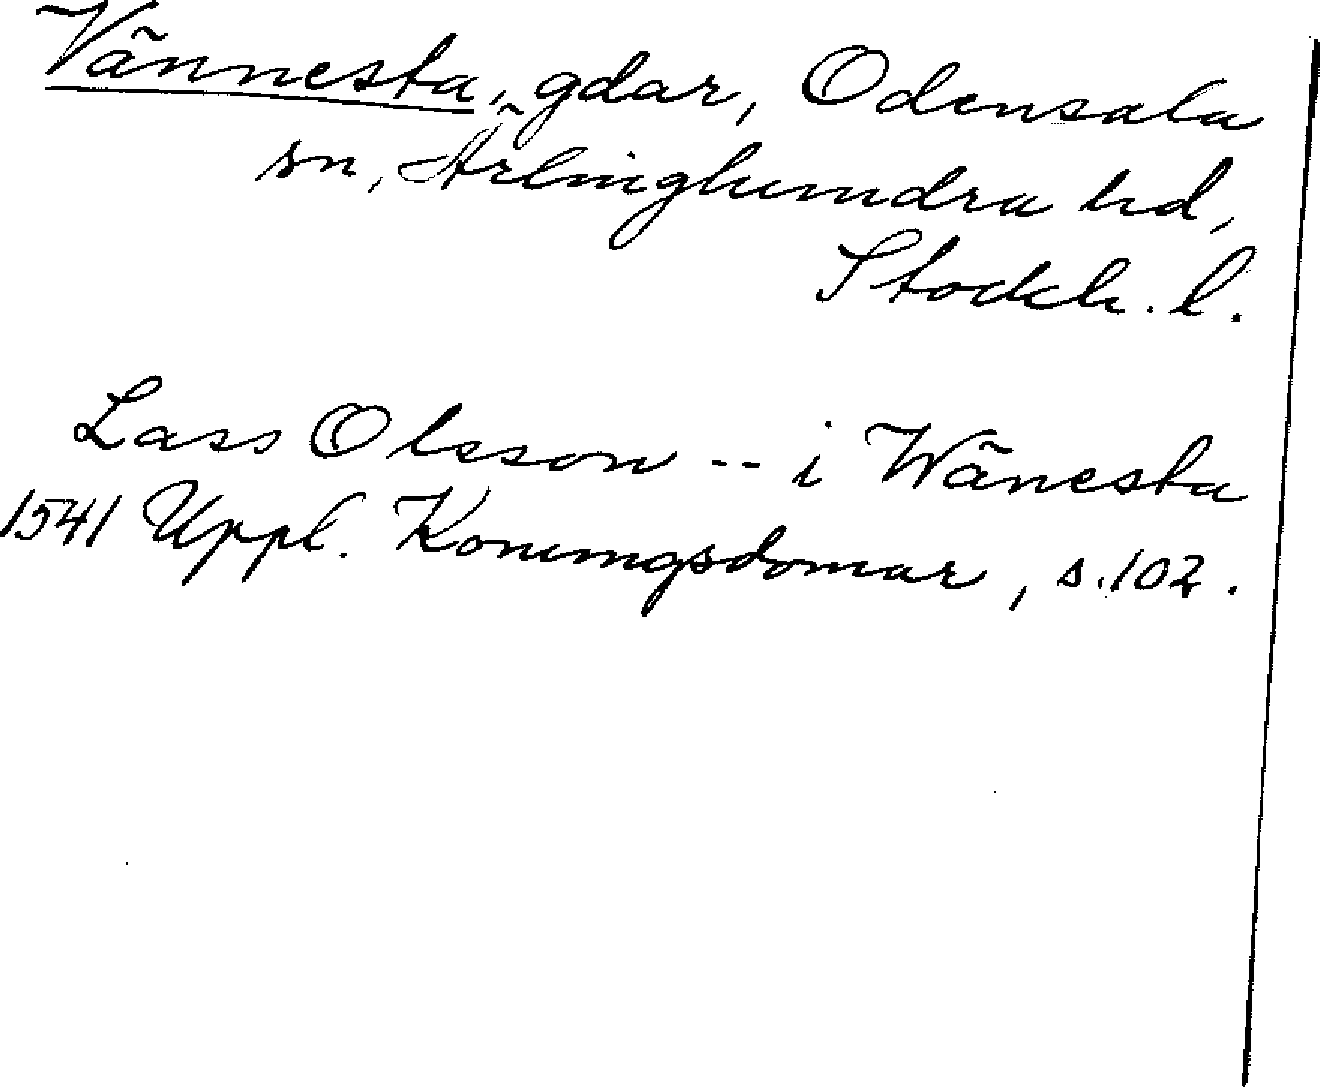 Vännesta, gdar, Odensala
sn, Ärlinghundra hd,
Stockh. l.
Lass Olsson -- i Wänesta
1541 Uppl. Konungsdomar, s. 102.